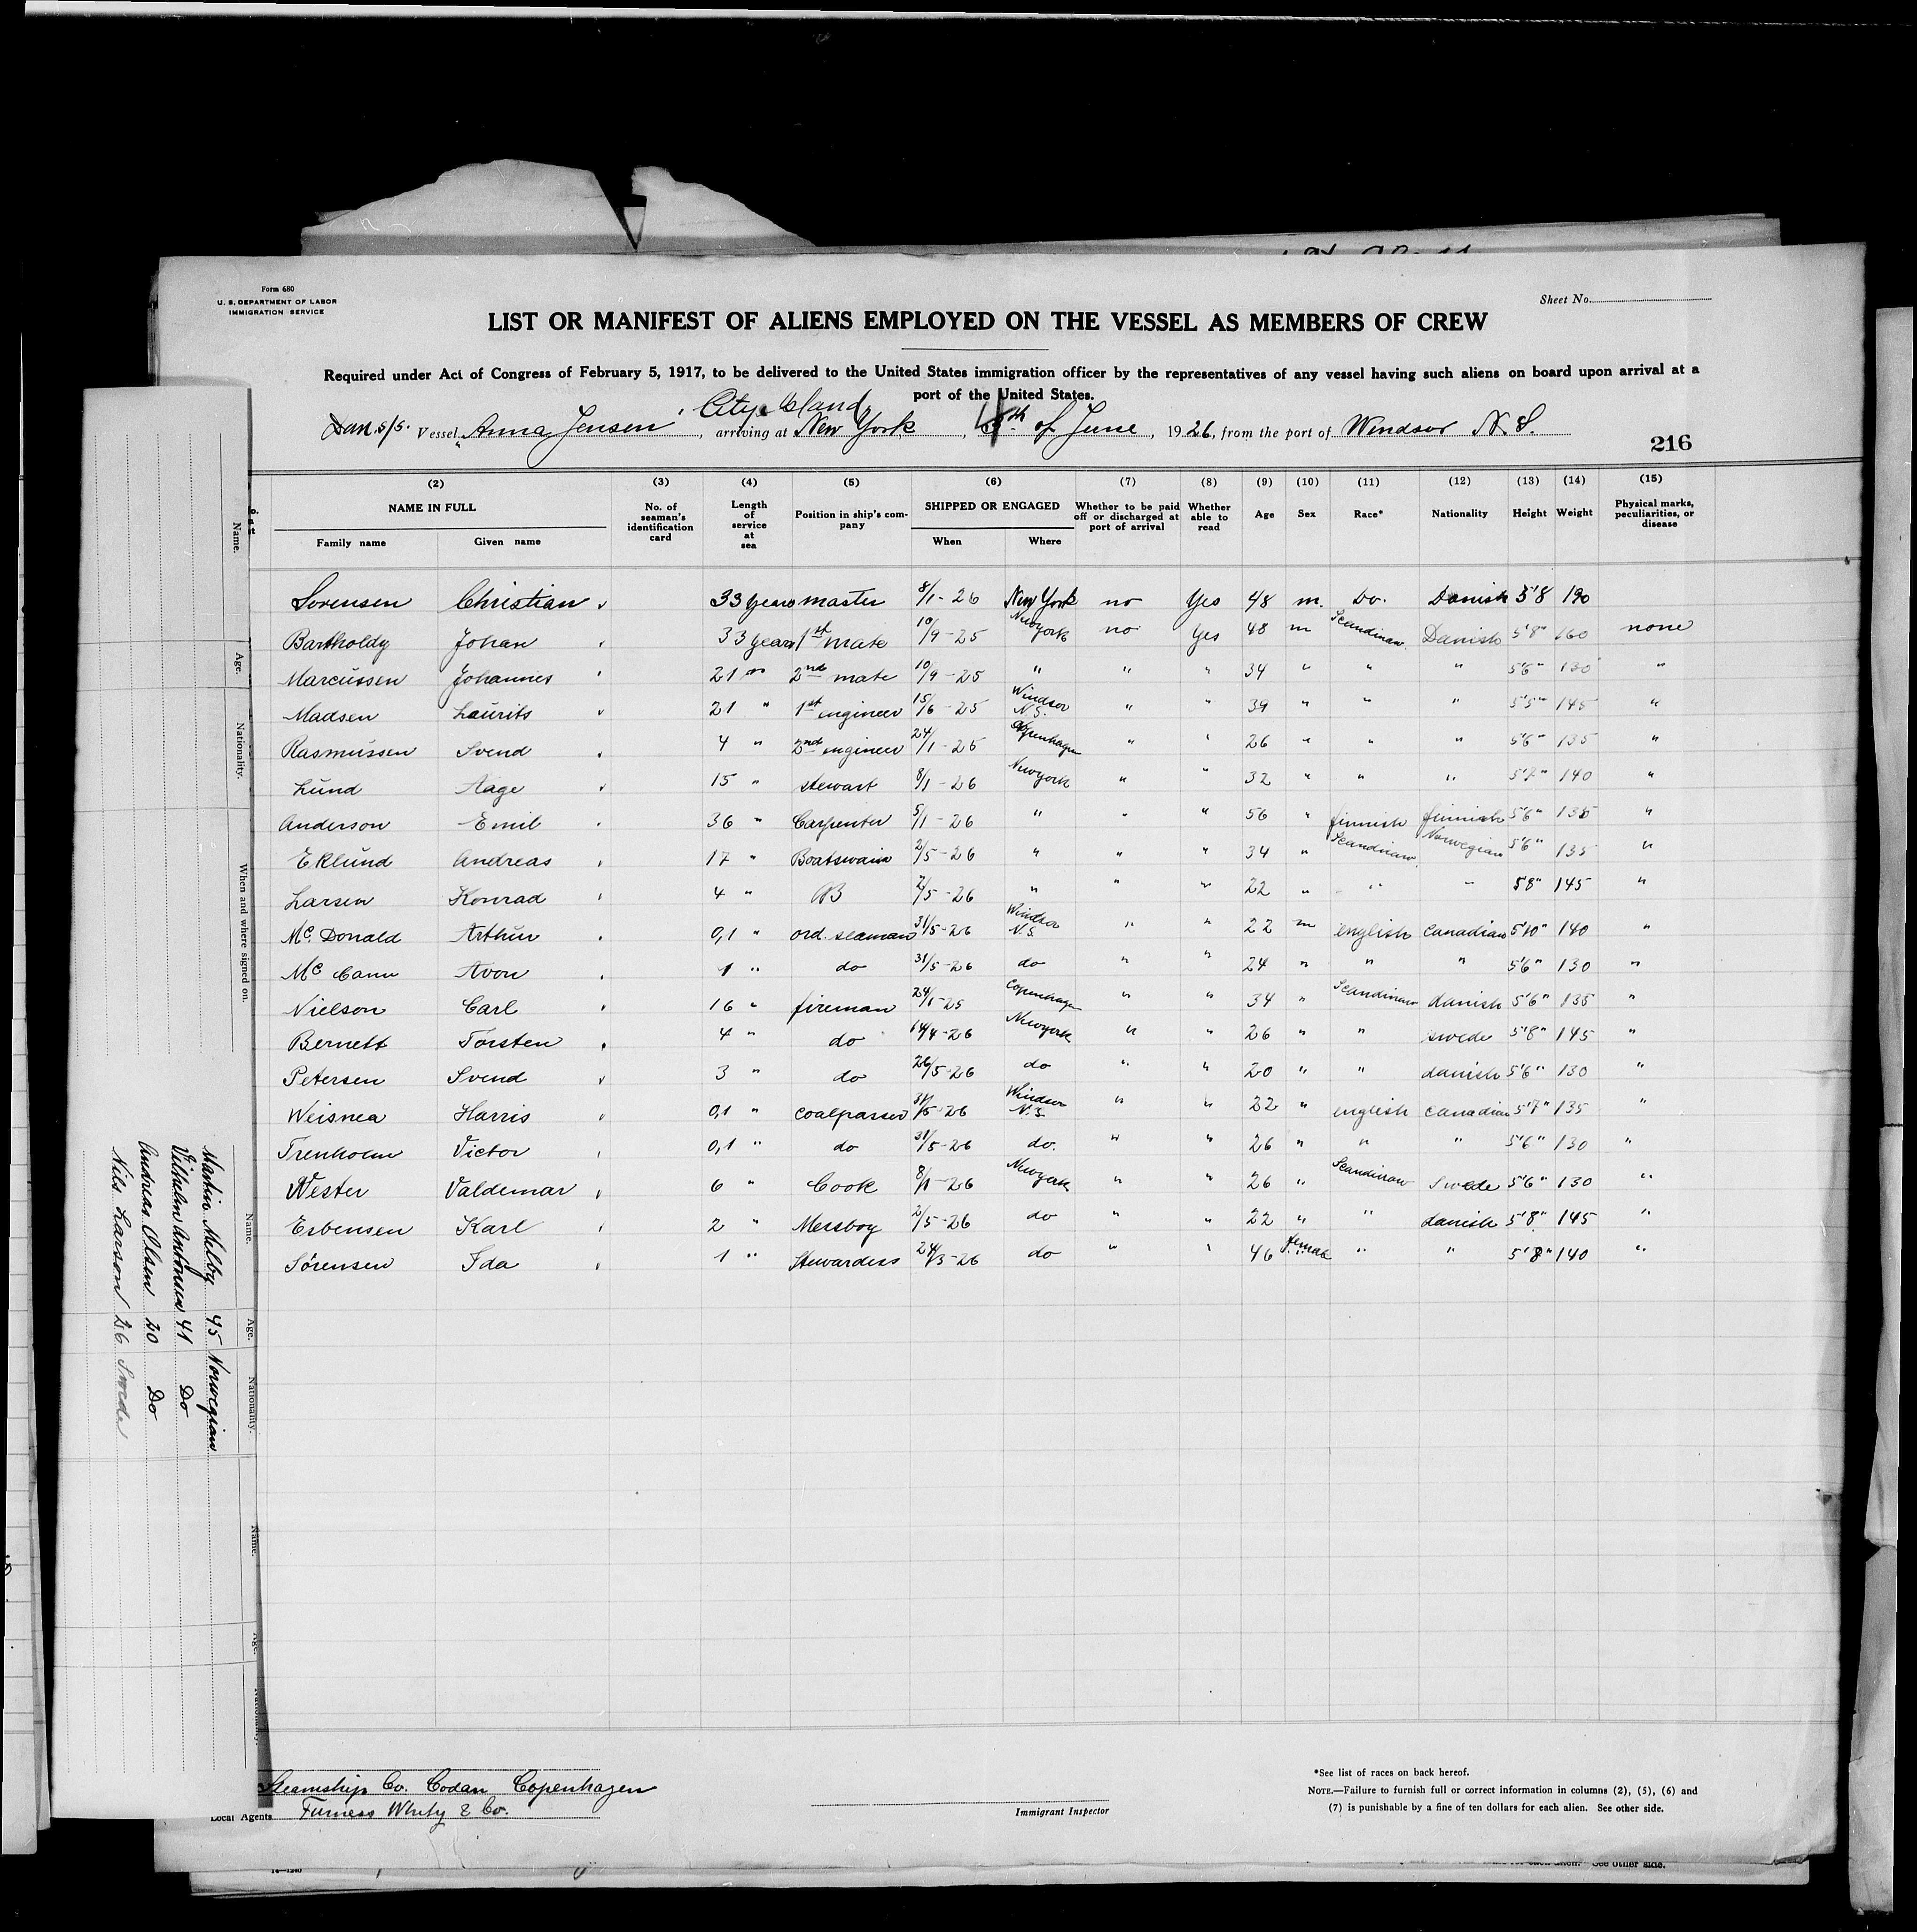 Form 680
U. S. DEPARTMENT OF LABOR
IMMIGRATION SERVICE
Sheet No.
LIST OR MANIFEST OF ALIENS EMPLOYED ON THE VESSEL AS MEMBERS OF CREW
Required under Act of Congress of February 5, 1917, to be delivered to the United States immigration officer by the representatives of any vessel having such aliens on board upon arrival at a
port of the United States.
City Island,
Dan. s/s. Vessel Anna Jensen, arriving at New York, th of June, 1926, from the port of Windsor N.S.
216
(2) (3) (4) (5) (6) (7) (8) (9) (10) (11) (12) (13) (14) (15)
NAME IN FULL
Family name Given name
No. of seaman's identification card
Length of service at sea
Position in ship's company
SHIPPED OR ENGAGED
When Where
Whether to be paid off or discharged at port of arrival
Whether able to read
Age Sex Race* Nationality Height Weight
Physical marks, peculiarities, or disease
Sorensen Christian 33 years master 8/1-26 New York no Yes 48 m. Do. Danish 5'8 190
Bartholdy Johan 33 years 1st mate 10/9-25 Newyork no Yes 48 m Scandinav. Danish 5'8" 160 none
Marcussen Johannes 21 " 2nd mate 10/9-25 " " " 34 " " " 5'6" 130 "
Madsen Laurits 21 " 1st engineer 15/6-25 Windsor N.S. " " 39 " " " 5'5" 145 "
Rasmussen Svend 4 " 2nd engineer 24/1-25 Copenhagen " " 26 " " " 5'6" 135 "
Lund Aage 15 " stewart 8/1-26 Newyork " " 32 " " " 5'7" 140 "
Anderson Emil 36 " Carpenter 5/1-26 " " " 56 " finnish finnish 5'6" 135 "
Eklund Andreas 17 " Boatswain 2/5-26 " " " 34 " Scandinav. Norwegian 5'6" 135 "
Larsen Konrad 4 " AB 2/5-26 " " " 22 " " " 5'8" 145 "
Mc. Donald Arthur 0,1 " ord. seaman 31/5-26 Windsor N.S. " " 22 m english canadian 5'10" 140 "
Mc Cann Avon 1 " do 31/5-26 do " " 24 " " " 5'6" 130 "
Nielson Carl 16 " fireman 24/1-25 Copenhagen " " 34 " Scandinav danish 5'6" 135 "
Bernett Torsten 4 " do 14/4-26 Newyork " " 26 " " swede 5'8" 145 "
Petersen Svend 3 " do 26/5-26 do " " 20 " " danish 5'6" 130 "
Weisnea Harris 0,1 " coalpasser 31/5-26 Windsor N.S. " " 22 " english canadian 5'7" 135 "
Trenholm Victor 0,1 " do 31/5-26 do. " " 26 " " " 5'6" 130 "
Wester Valdemar 6 " Cook 8/1-26 Newyork " " 26 " Scandinav Swede 5'6" 130 "
Esbensen Karl 2 " Messboy 2/5-26 do " " 22 " " danish 5'8" 145 "
Sörensen Ida 1 " Stewardess 24/3-26 do " " 46 female " " 5'8" 140 "
Steamship Co. Codan Copenhagen
Local Agents Furness Whity & Co.
Immigrant Inspector
*See list of races on back hereof.
NOTE.—Failure to furnish full or correct information in columns (2), (5), (6) and
(7) is punishable by a fine of ten dollars for each alien. See other side.
See other side.
Name. Age. Nationality. When and where signed on.
Name. Age. Nationality.
Martin Melby 45 Norwegian
Vilhelm Antonsen 41 Do
Andreas Olsen 20 Do
Nils Larson 26 Swede
Name. Age. Nationality.